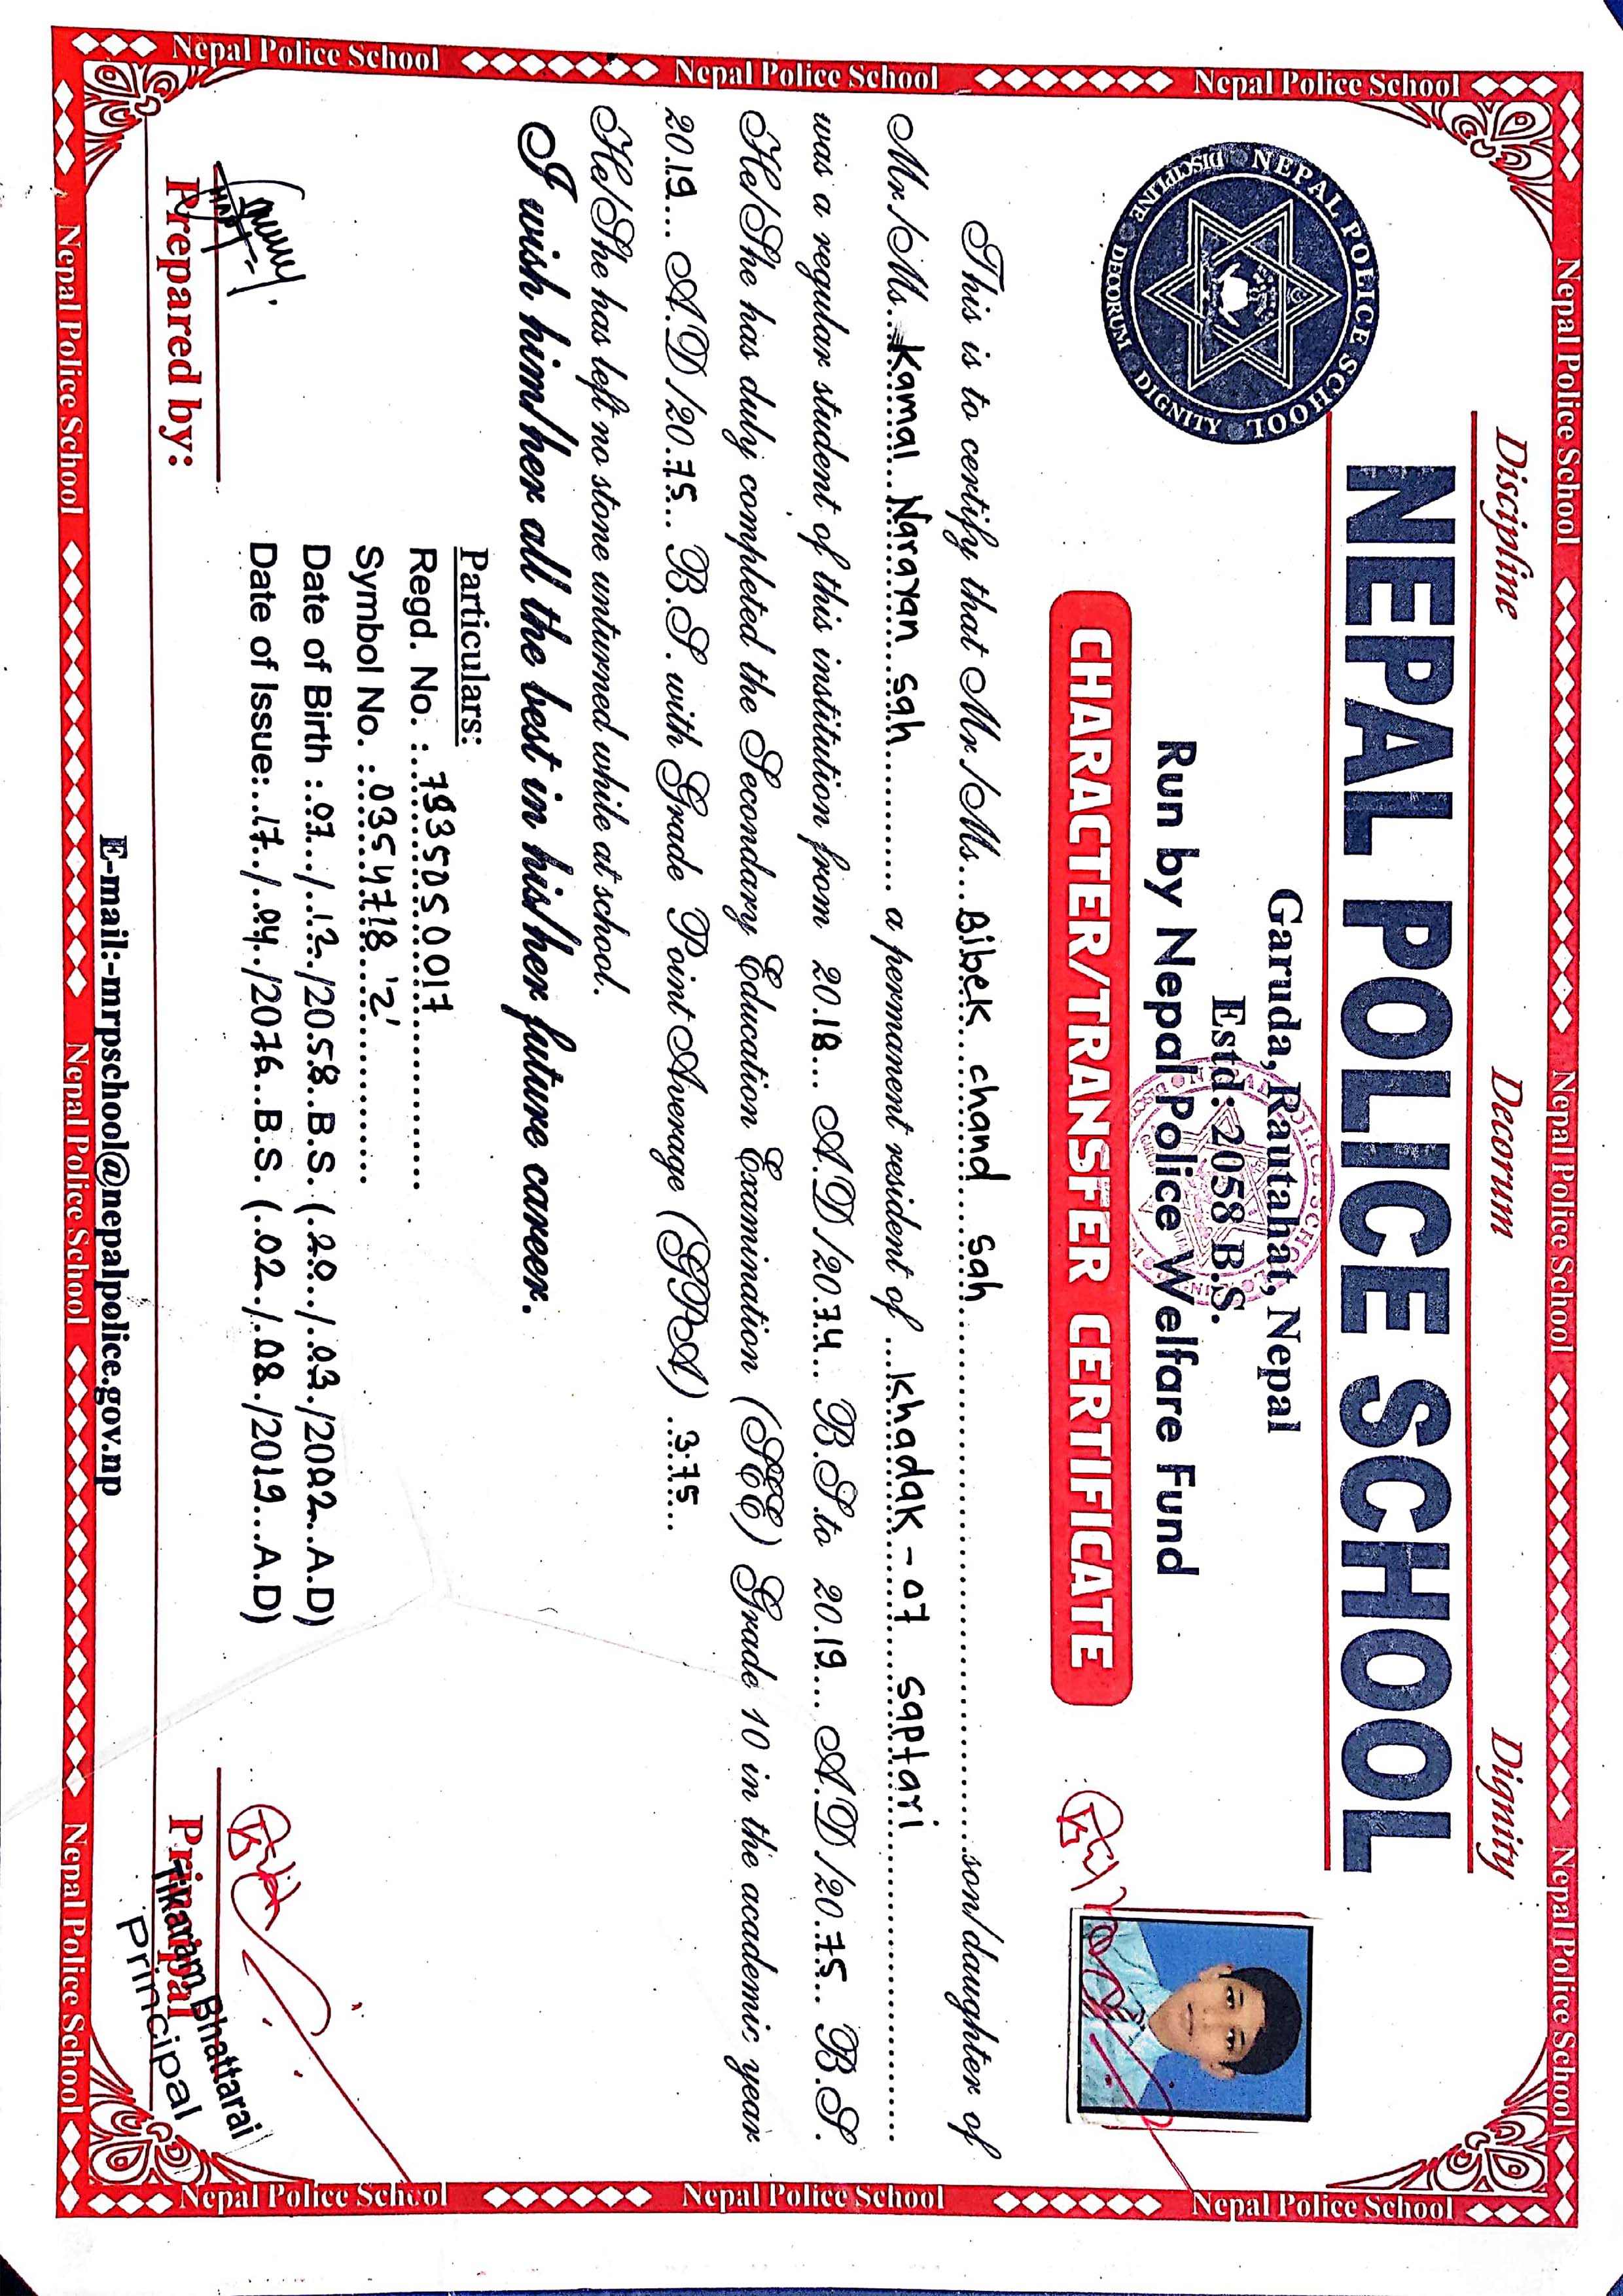 Nepal Police School Nepal Police School Nepal Police School
Discipline Decorum Dignity
NEPAL POLICE SCHOOL
NEPAL POLICE SCHOOL
DISCIPLINE DECORUM DIGNITY
Garuda, Rautahat, Nepal
Estd: 2058 B.S.
Run by Nepal Police Welfare Fund
CHARACTER/TRANSFER CERTIFICATE
This is to certify that Mr./Ms. Bibek chand sah son/daughter of
Mr./Ms. Kamal Narayan sah a permanent resident of Khadak-07 saptari
was a regular student of this institution from 2018 A.D/2074 B.S.to 2019 A.D/2075 B.S.
He/She has duly completed the Secondary Education Examination (SEE) Grade 10 in the academic year
2019 A.D/2075 B.S. with Grade Point Average (GPA) 3.75
He/She has left no stone unturned while at school.
I wish him/her all the best in his/her future career.
Particulars:
Regd. No. : 7535050017
Symbol No. : 0354718 'Z'
Date of Birth : 07/12/2058 B.S. (20/03/2002 A.D)
Date of Issue: 17/04/2076 B.S. (02/08/2019 A.D)
Prepared by: Principal
Tikaram Bhattarai
Principal
E-mail:-mrpschool@nepalpolice.gov.np
Nepal Police School Nepal Police School Nepal Police School
Nepal Police School Nepal Police School Nepal Police School
Nepal Police School Nepal Police School Nepal Police School